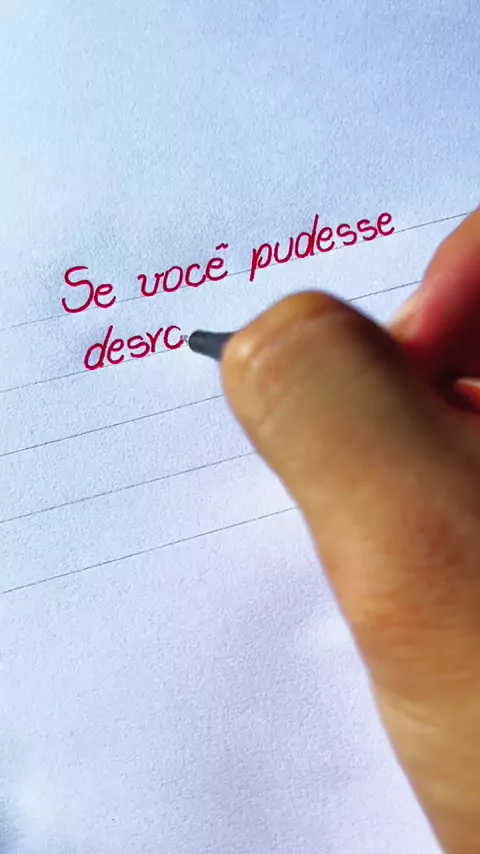 Se você pudesse
desrc